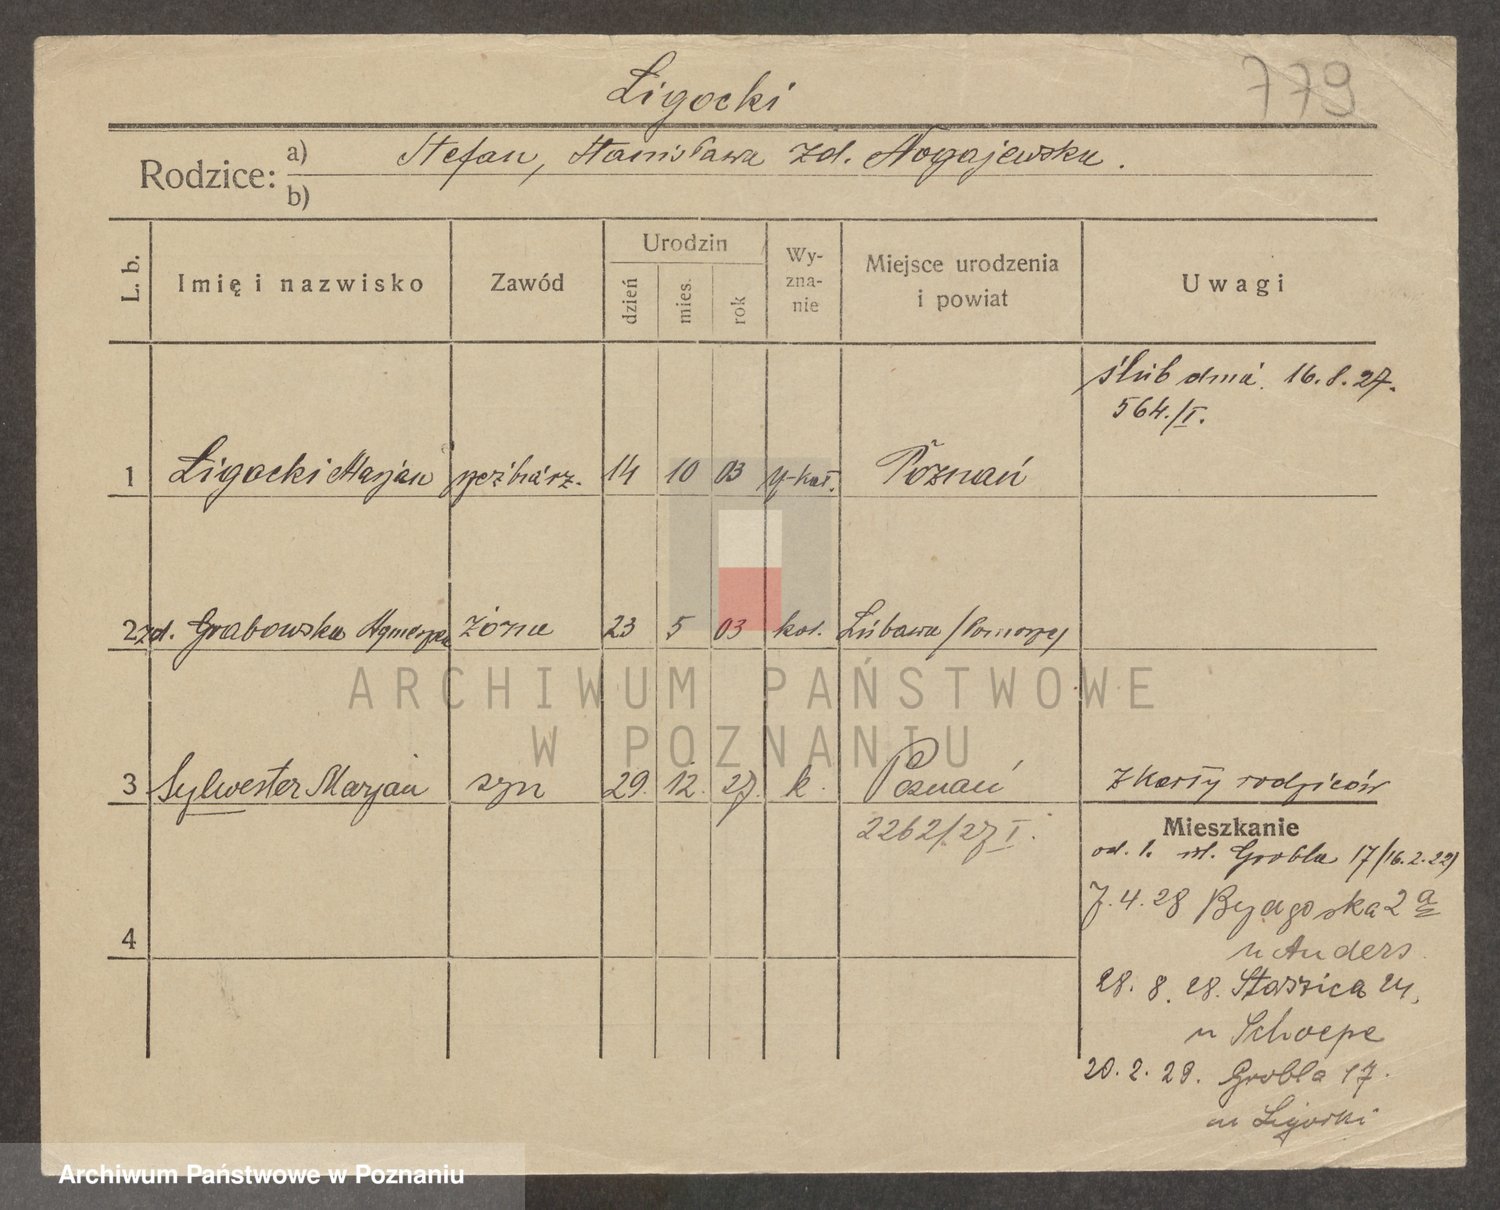 Ligocki
779
Rodzice: a) Stefan, Stanisława zd. Nogajewska.
b)
L. b.
Imię i nazwisko
Zawód
Urodzin
dzień
mies.
rok
Wy-
zna-
nie
Miejsce urodzenia
i powiat
Uwagi
ślub dnia 16.8.27.
564./I.
1 Ligocki Marjan rzeźbiarz. 14 10 03 r-kat. Poznań
2 zd. Grabowska Agnieszka żona 23 5 03 kat. Lubawa /Pomorze/
ARCHIWUM PAŃSTWOWE
W POZNANIU
3 Sylwester Marjan syn 29. 12. 27. k. Poznań z karty rodziców
2262/27 I.
Mieszkanie
od. 1. ul. Grobla 17/16.2.22)
7.4.28 Bydgoska 2a
u Anders.
4
28. 8. 28. Staszica 24,
u Schoepe
20. 2. 29. Grobla 17.
u Ligocki
Archiwum Państwowe w Poznaniu